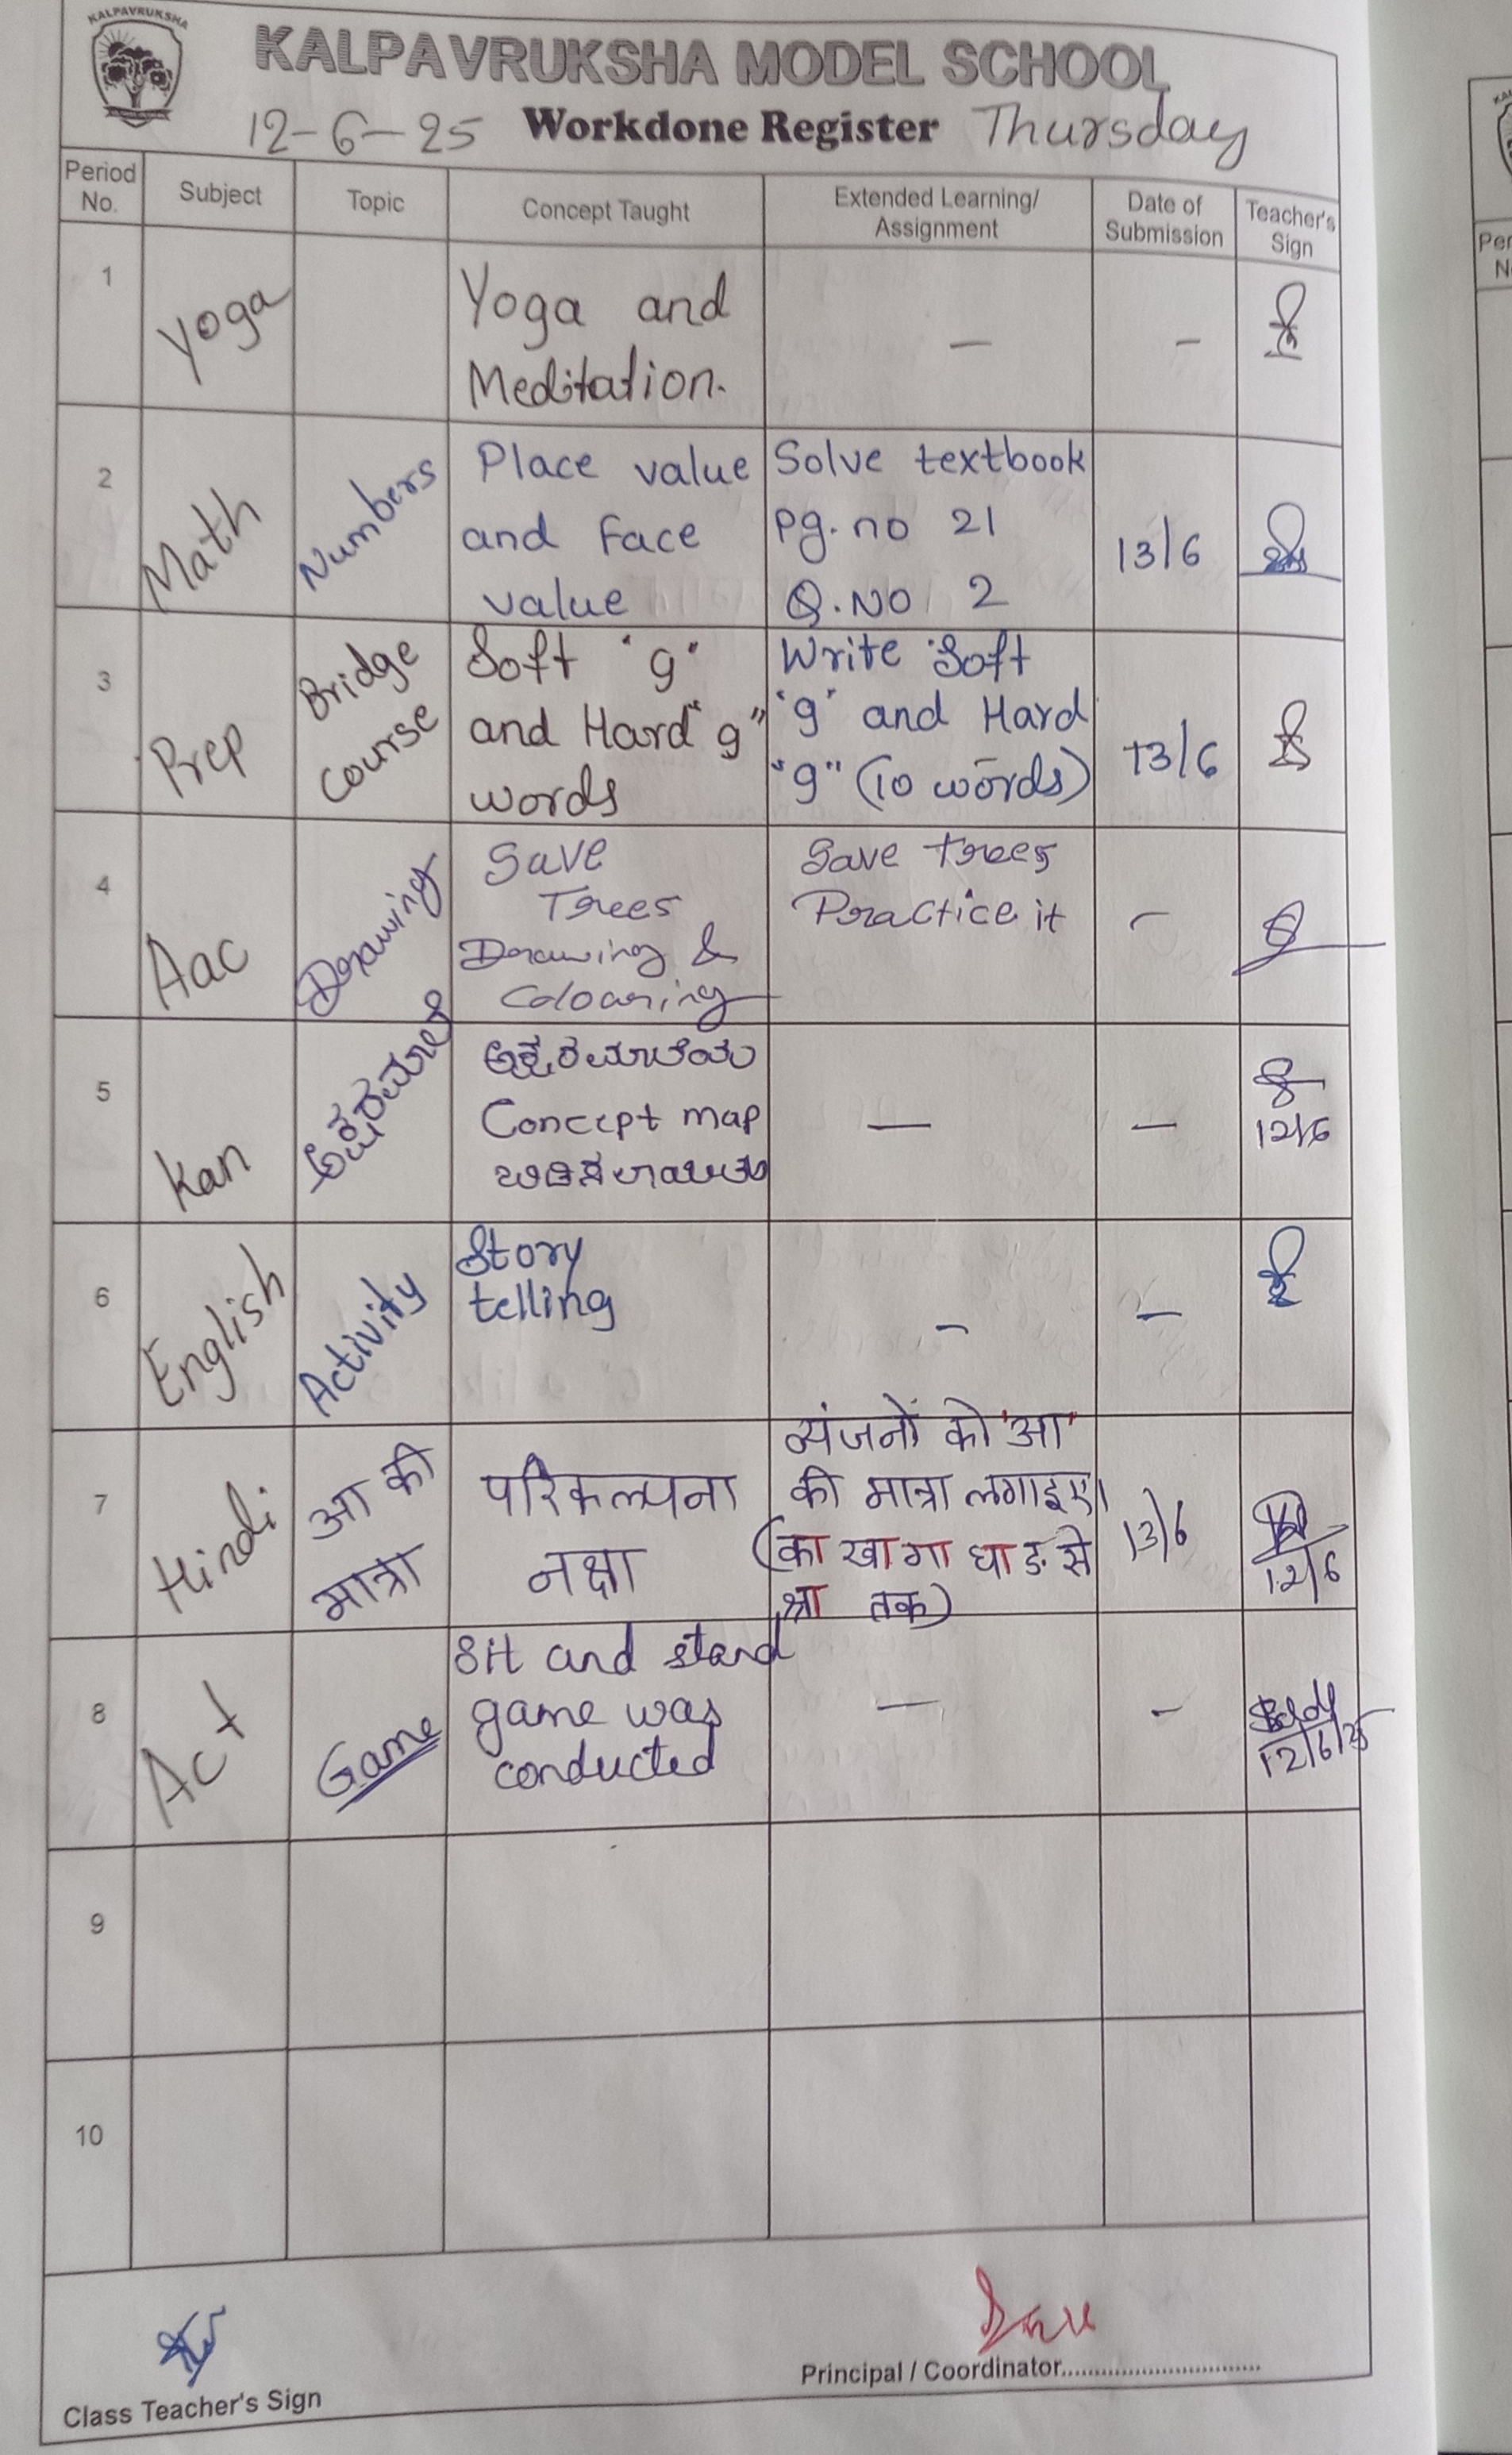 KALPAVRUKSHA
KALPAVRUKSHA MODEL SCHOOL
12-6-25 Workdone Register Thursday
Period No. Subject Topic Concept Taught Extended Learning/ Assignment Date of Submission Teacher's Sign
1
Yoga
Yoga and
Meditation.
–
–
2
Math
Numbers
Place value
and Face
value
Solve textbook
Pg. no 21
Q. No 2
13/6
3
Prep
Bridge
Course
Soft "g"
and Hard "g"
words
Write Soft
"g" and Hard
"g" (10 words)
13/6
4
Aac
Drawing
Save
Trees
Drawing &
Colouring
Save trees
Practice it
–
5
Kan
ಅಕ್ಷರಮಾಲೆ
Concept map
—
—
12/6
6
English
Activity
Story
telling
–
–
7
Hindi
आ की
मात्रा
परिकल्पना
नक्षा
व्यंजनों को 'आ'
की मात्रा लगाइए।
(का खा गा घा ङ से
श्रा तक)
13/6
12/6
8
Act
Game
Sit and stand
game was
conducted
—
–
12/6/25
9
10
Class Teacher's Sign
Principal / Coordinator..............................